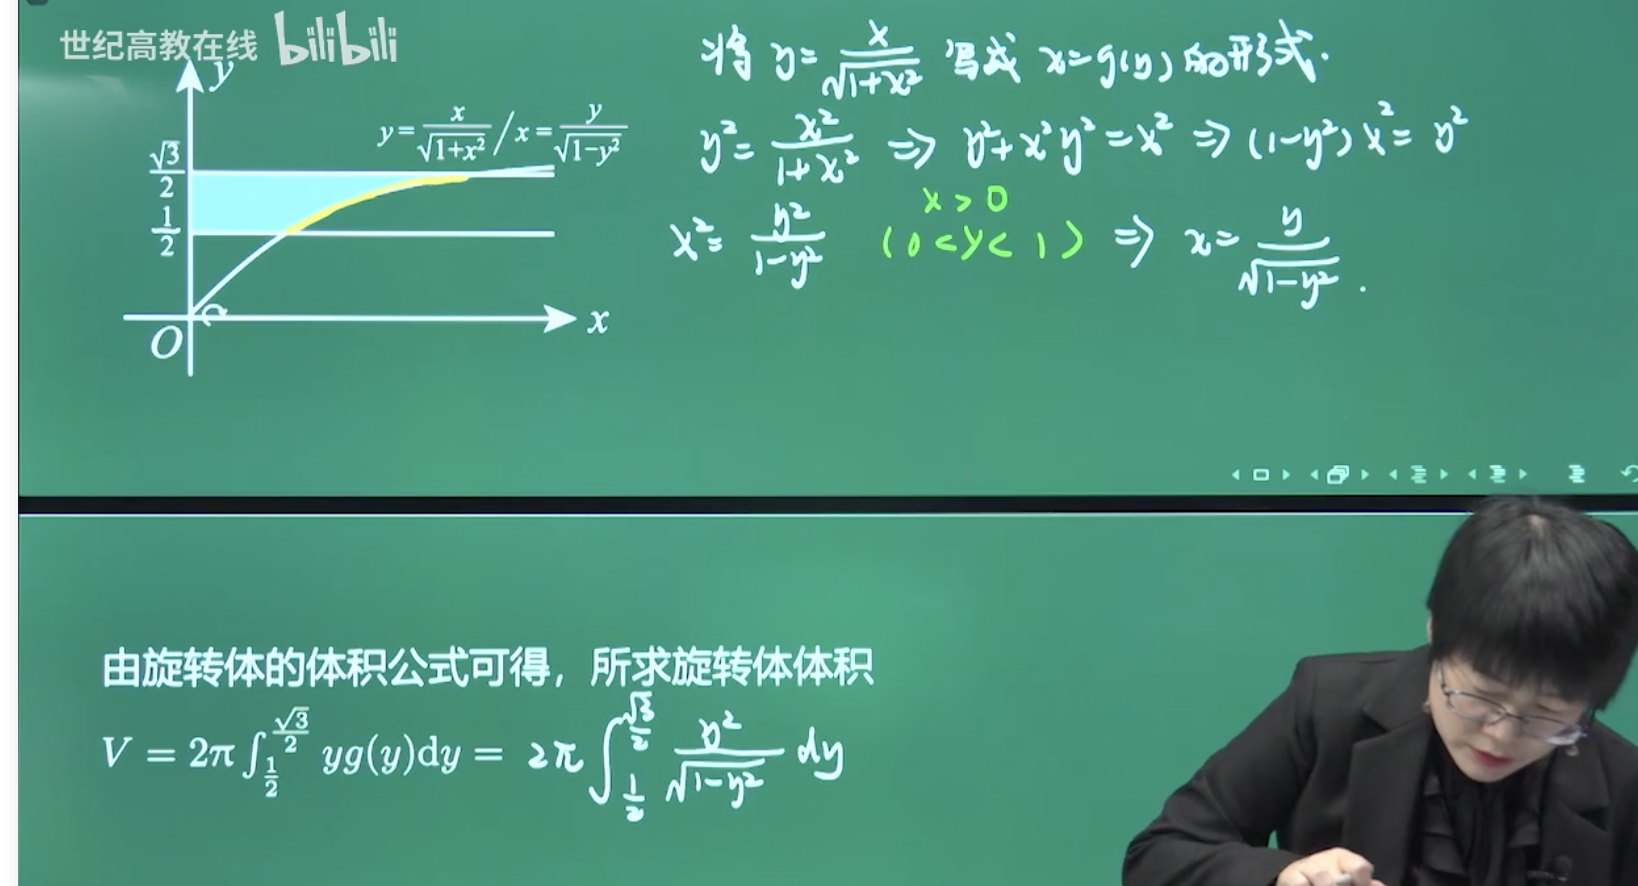 世纪高教在线 bilibili
y
y = x/√(1+x²) / x = y/√(1−y²)
√3/2
1/2
O
x
将 y = x/√(1+x²) 写成 x = g(y) 的形式.
y² = x²/(1+x²) ⇒ y²+x²y² = x² ⇒ (1−y²)x² = y²
x > 0
x² = y²/(1−y²) (0<y<1) ⇒ x = y/√(1−y²).
由旋转体的体积公式可得，所求旋转体体积
V = 2π∫_{1/2}^{√3/2} yg(y)dy = 2π∫_{1/2}^{√3/2} y²/√(1−y²) dy